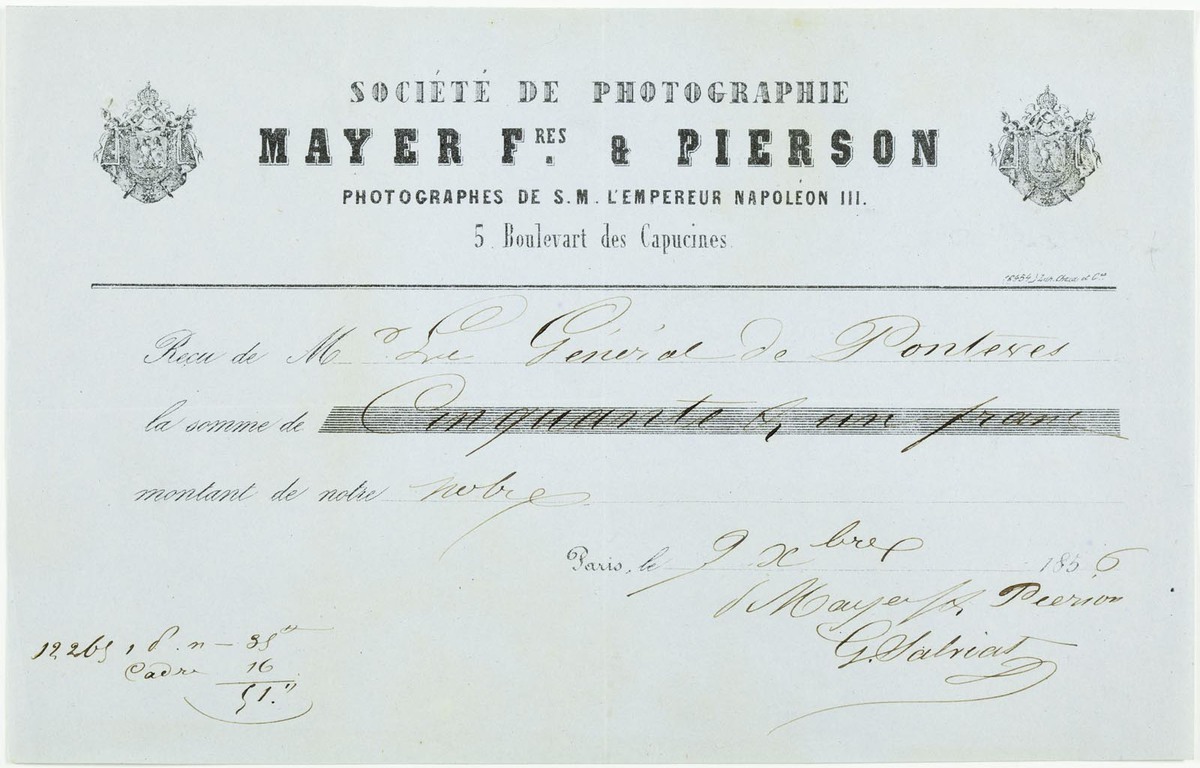 SOCIÉTÉ DE PHOTOGRAPHIE
MAYER F.RES & PIERSON
PHOTOGRAPHES DE S.M. L'EMPEREUR NAPOLÉON III.
5. Boulevart des Capucines.
Reçu de Mr Le Général de Pontevès
la somme de Cinquante & un franc
montant de notre
Paris, le 9 xbre 1856
Mayer fs. Pierson
G. Salviat
12265, 1 P. n — 35"
Cadre 16
51."